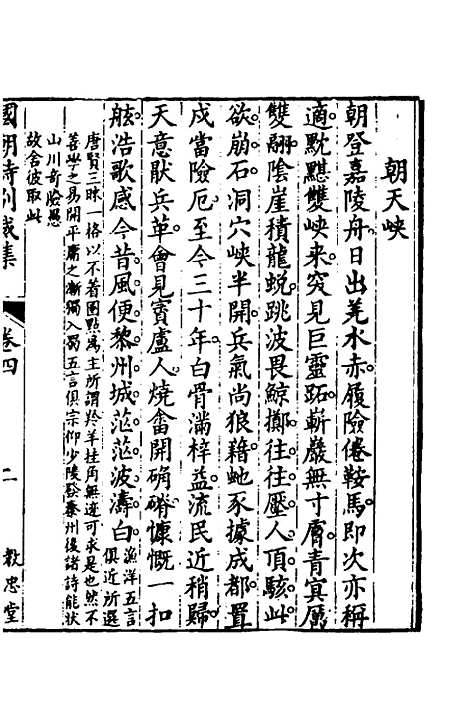 朝天峽
朝登嘉陵舟日出羌水赤履險倦鞍馬即次亦稱
適黕黮雙峽來突見巨靈跖嶄巖無寸膚青冥厲
雙翮陰崖積龍蛻跳波畏鯨擲往往壓人頂駭此
欲崩石洞穴峽半開兵氣尚狼藉虵豕據成都置
戍當險厄至今三十年白骨滿梓益流民近稍歸
天意厭兵革會見賨盧人燒畬開确磽慷慨一扣
舷浩歌感今昔風便黎州城茫茫波濤白漁洋五言俱近所選
唐賢三昧一格以不著圈點爲主所謂羚羊挂角無迹可求是也然不
善學之易開平庸之漸獨入蜀五言俱宗仰少陵發秦州後諸詩能狀
山川奇險愚
故舍彼取此
國朝詩別裁集
卷四
二
教忠堂